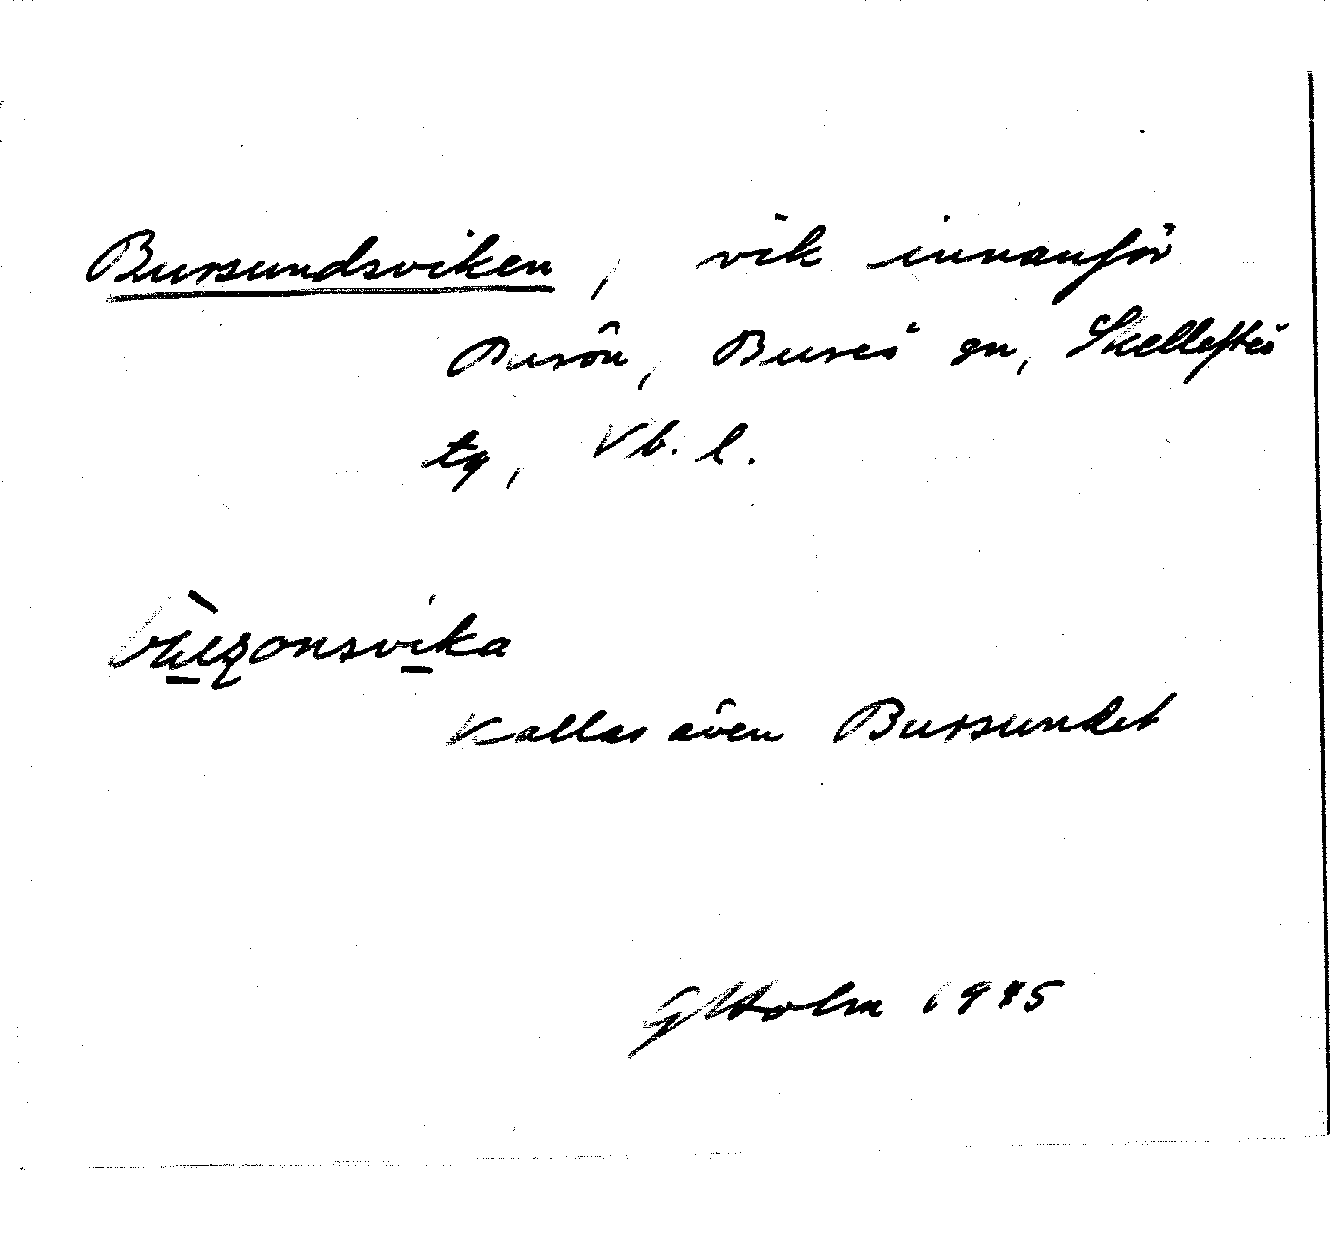 Bursundsviken, vik innanför
Burön, Bureå sn, Skellefteå
tg, Vb. l.
Kallas även Bursundet
G Holm 1945